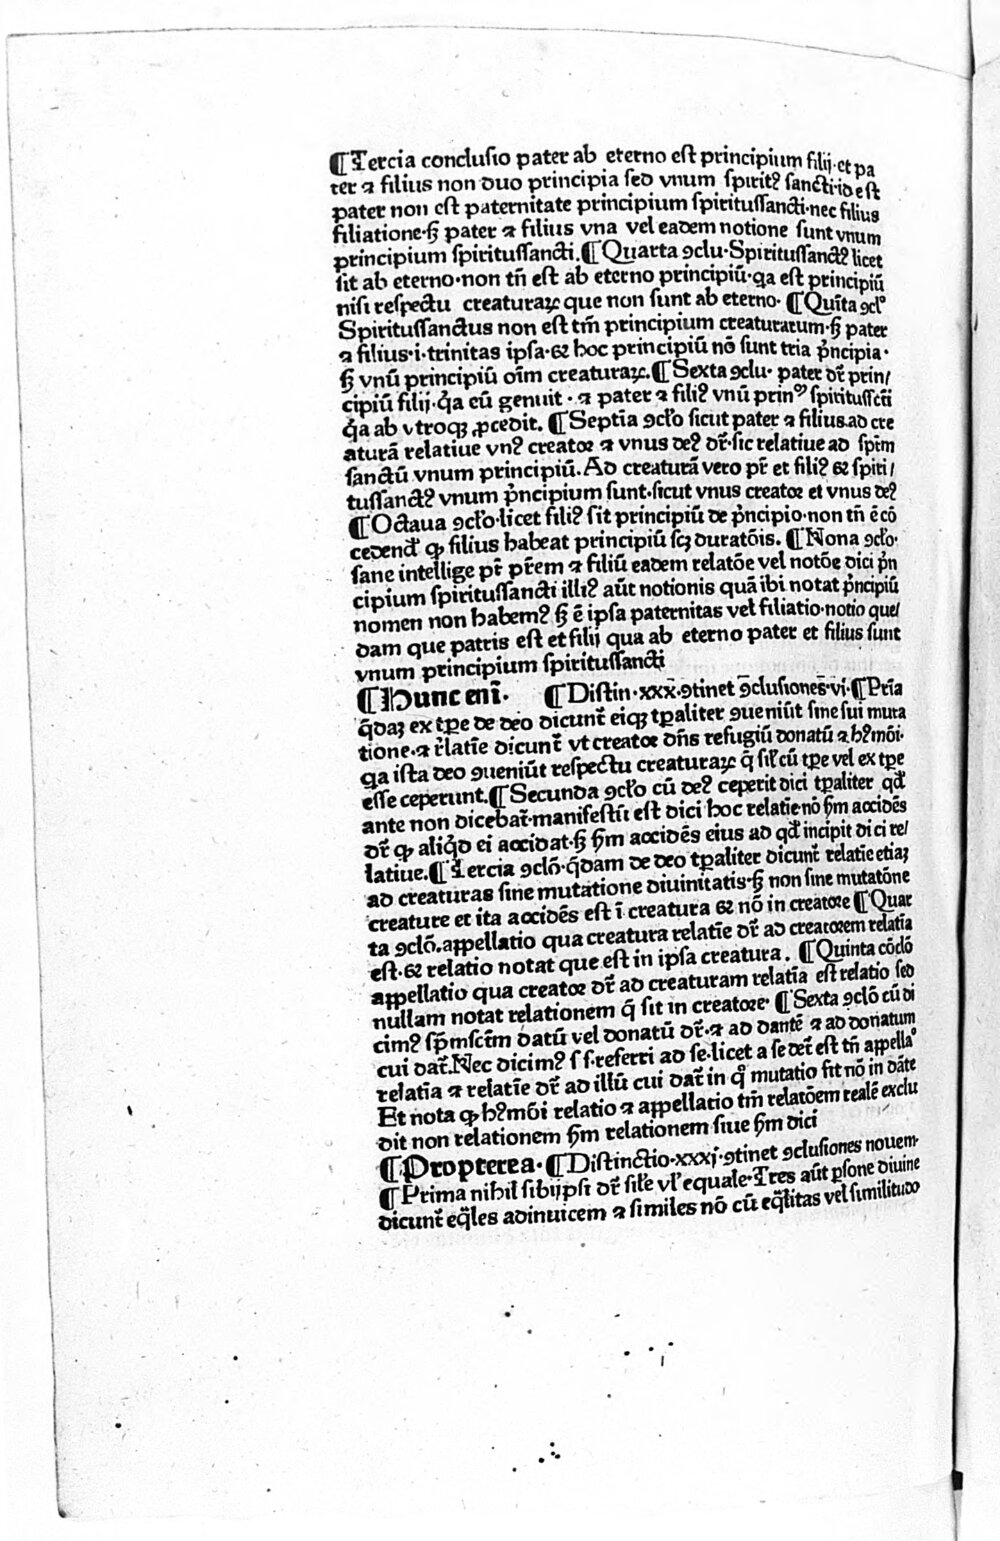 ¶Tercia conclusio pater ab eterno est principium filij·et pa
ter ⁊ filius non duo principia sed vnum spiritꝰ sancti·id est
pater non est paternitate principium spiritussancti·nec filius
filiatione·ꝫ pater ⁊ filius vna vel eadem notione sunt vnum
principium spiritussancti.¶Quarta ↄclu·Spiritussanctꝰ licet
sit ab eterno·non tñ est ab eterno principiũ·qa est principiũ
nisi respectu creaturaꝝ que non sunt ab eterno·¶Quĩta ↄclº
Spiritussanctus non est tm̃ principium creaturarum·ꝫ pater
⁊ filius·i·trinitas ipsa·⁊ hoc principiũ nõ sunt tria pͥncipia·
ꝫ vnũ principiũ oĩm creaturaꝝ.¶Sexta ↄclu· pater dr̃ prin/
cipiũ filij·qͥa eũ genuit·⁊ pater ⁊ filiꝰ vnũ prinᵐ spiritusscti
qͥa ab vtroqꝫ ꝓcedit.¶Septĩa ↄclo sicut pater ⁊ filius·ad cre
aturã relatiue vnꝰ creator ⁊ vnus deꝰ dr̃·sic relatiue ad spm̃
sanctũ vnum principiũ.Ad creaturã vero pr̃ et filiꝰ ⁊ spiri/
tussanctꝰ vnum pͥncipium sunt·sicut vnus creator et vnus deꝰ
¶Octaua ↄclo·licet filiꝰ sit principiũ de pͥncipio·non tñ ẽ cõ
cedend ꝙ filius habeat principiũ scꝫ duratõis.¶Nona ↄclo·
sane intellige pr̃ pr̃em ⁊ filiũ eadem relatõe vel notõe dici pͥn
cipium spiritussancti illiꝰ aũt notionis quã ibi notat pͥncipiũ
nomen non habemꝰ ꝫ ẽ ipsa paternitas vel filiatio·notio que/
dam que patris est et filij qua ab eterno pater et filius sunt
vnum principium spiritussancti
¶Hunc eni·  ¶Distin·xxx·ↄtinet ↄclusiones·vi·¶Pria
q̃daꝫ ex tpe de deo dicunt eiqꝫ tpaliter ↄueniũt sine sui muta
tione·⁊ rl̃atĩe dicunt vt creator dñs refugiũ donatũ ⁊ hꝰmõi·
qa ista deo ↄueniũt respectu creaturaꝝ q̃ sil cũ tpe vel ex tpe
esse ceperunt.¶Secunda ↄclo cũ deꝰ ceperit dici tpaliter qd
ante non dicebat·manifestũ est dici hoc relatĩe nõ ẜm accidẽs
dr̃ ꝙ aliqͥd ei accidat·ꝫ ẜm accidẽs eius ad qd incipit dici re/
latiue.¶Tercia ↄclõ·q̃dam de deo tpaliter dicunt relatie etiaꝫ
ad creaturas sine mutatione diuinitatis·ꝫ non sine mutatõne
creature et ita accidẽs est ĩ creatura ⁊ nõ in creatore ¶Quar
ta ↄclõ.appellatio qua creatura relatie dr̃ ad creatorem relatĩa
est·⁊ relatio notat que est in ipsa creatura.¶Quinta cõclõ
appellatio qua creator dr̃ ad creaturam relatĩa est relatio sed
nullam notat relationem q̃ sit in creatore·¶Sexta ↄclõ cũ di
cimꝰ spm̃sctm̃ datũ vel donatũ dr̃·⁊ ad dantẽ ⁊ ad donatum
cui dat.Nec dicimꝰ s s·referri ad se·licet a se det est tñ appellaº
relatĩa ⁊ relatie dr̃ ad illũ cui dat in qº mutatio fit nõ in dãte
Et nota ꝙ hꝰmõi relatio ⁊ appellatio tm̃ relatõem realẽ exclu
dit non relationem ẜm relationem siue ẜm dici
¶Propterea·¶Distinctio·xxxj·ↄtinet ↄclusiones nouem·
¶Prima nihil sibijpsi dr̃ sile vl' equale·Tres aũt psone diuine
dicunt eq̃les adinuicem ⁊ similes nõ cũ eq̃litas vel similitudo